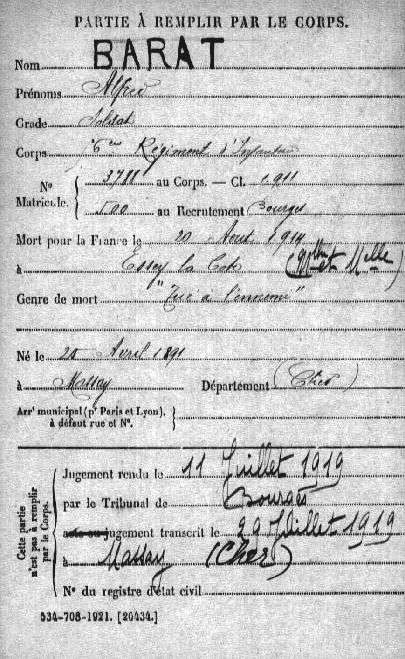 PARTIE À REMPLIR PAR LE CORPS.
Nom BARAT
Prénoms Alfred
Grade Soldat
Corps Régiment d'Infanterie
Nº Matricule. 3788 au Corps. — Cl. 1911
500 au Recrutement Bourges
Mort pour la France le 20 Aout 1914
à Essey la Cote (Mthe et Mlle)
Genre de mort "Tué à l'ennemi"
Né le 25 Avril 1891
à Massay Département (Cher)
Arrt municipal (pr Paris et Lyon), à défaut rue et Nº.
Cette partie n'est pas à remplir par le Corps.
Jugement rendu le 11 Juillet 1919
par le Tribunal de Bourges
acte ou jugement transcrit le 29 Juillet 1919
à Massay (Cher)
Nº du registre d'état civil
534-708-1921. [26434.]